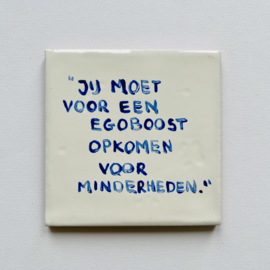 "JIJ MOET
VOOR EEN
EGOBOOST
OPKOMEN
VOOR
MINDERHEDEN."